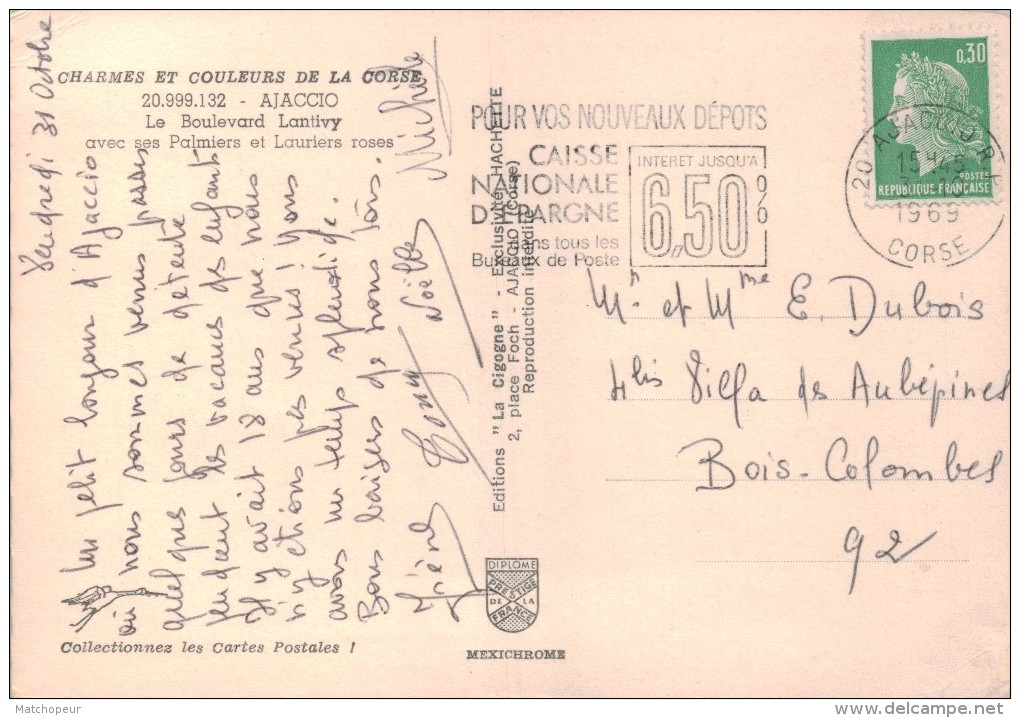 CHARMES ET COULEURS DE LA CORSE
20.999.132 - AJACCIO
Le Boulevard Lantivy
avec ses Palmiers et Lauriers roses
Vendredi 31 Octobre
Un petit bonjour d'Ajaccio
où nous sommes venus passer
quelques jours de détente
pendant les vacances des enfants
Il y avait 18 ans que nous
n'y étions pas venus ! nous
avons un temps splendide.
Bons baisers de nous tous.
Noëlle
Michèle
Collectionnez les Cartes Postales !
Editions "La Cigogne" - Exclusivité HACHETTE
2, place Foch - AJACCIO (Corse)
Reproduction interdite
DIPLOME
PRESTIGE
DE LA
FRANCE
MEXICHROME
POUR VOS NOUVEAUX DÉPOTS
CAISSE
NATIONALE
D'EPARGNE
dans tous les
Bureaux de Poste
INTERET JUSQU'A
6,50%
0,30
POSTES
REPUBLIQUE FRANÇAISE
20 AJACCIO
15H45
1969
CORSE
Mr et Mme E. Dubois
4bis Villa des Aubépines
Bois-Colombes
92
Matchopeur
delcampe.net